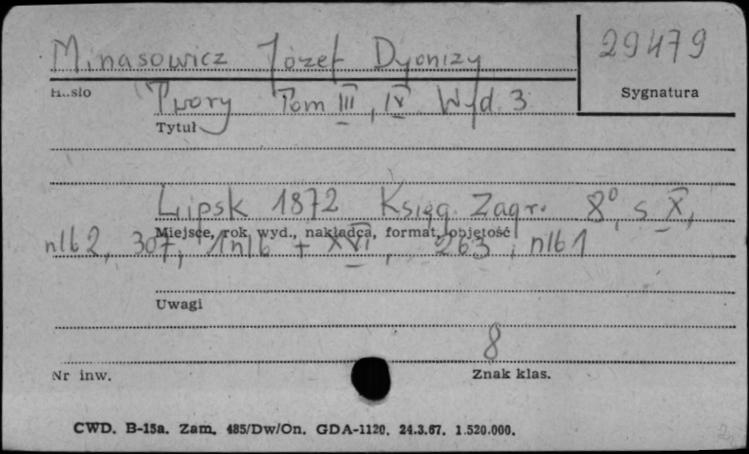 Minasowicz Józef Dyonizy
29479
Hasło
Sygnatura
Twory Tom III, IV Wyd. 3
Tytuł
Lipsk 1872 Księg. Zagr. 8°, s X,
Miejsce, rok wyd., nakładca, format, objętość
nlb 2, 307, 1nlb + XVI, 263, nlb 1
Uwagi
8
Nr inw.
Znak klas.
CWD. B-15a. Zam. 485/Dw/On. GDA-1120. 24.3.67. 1.520.000.